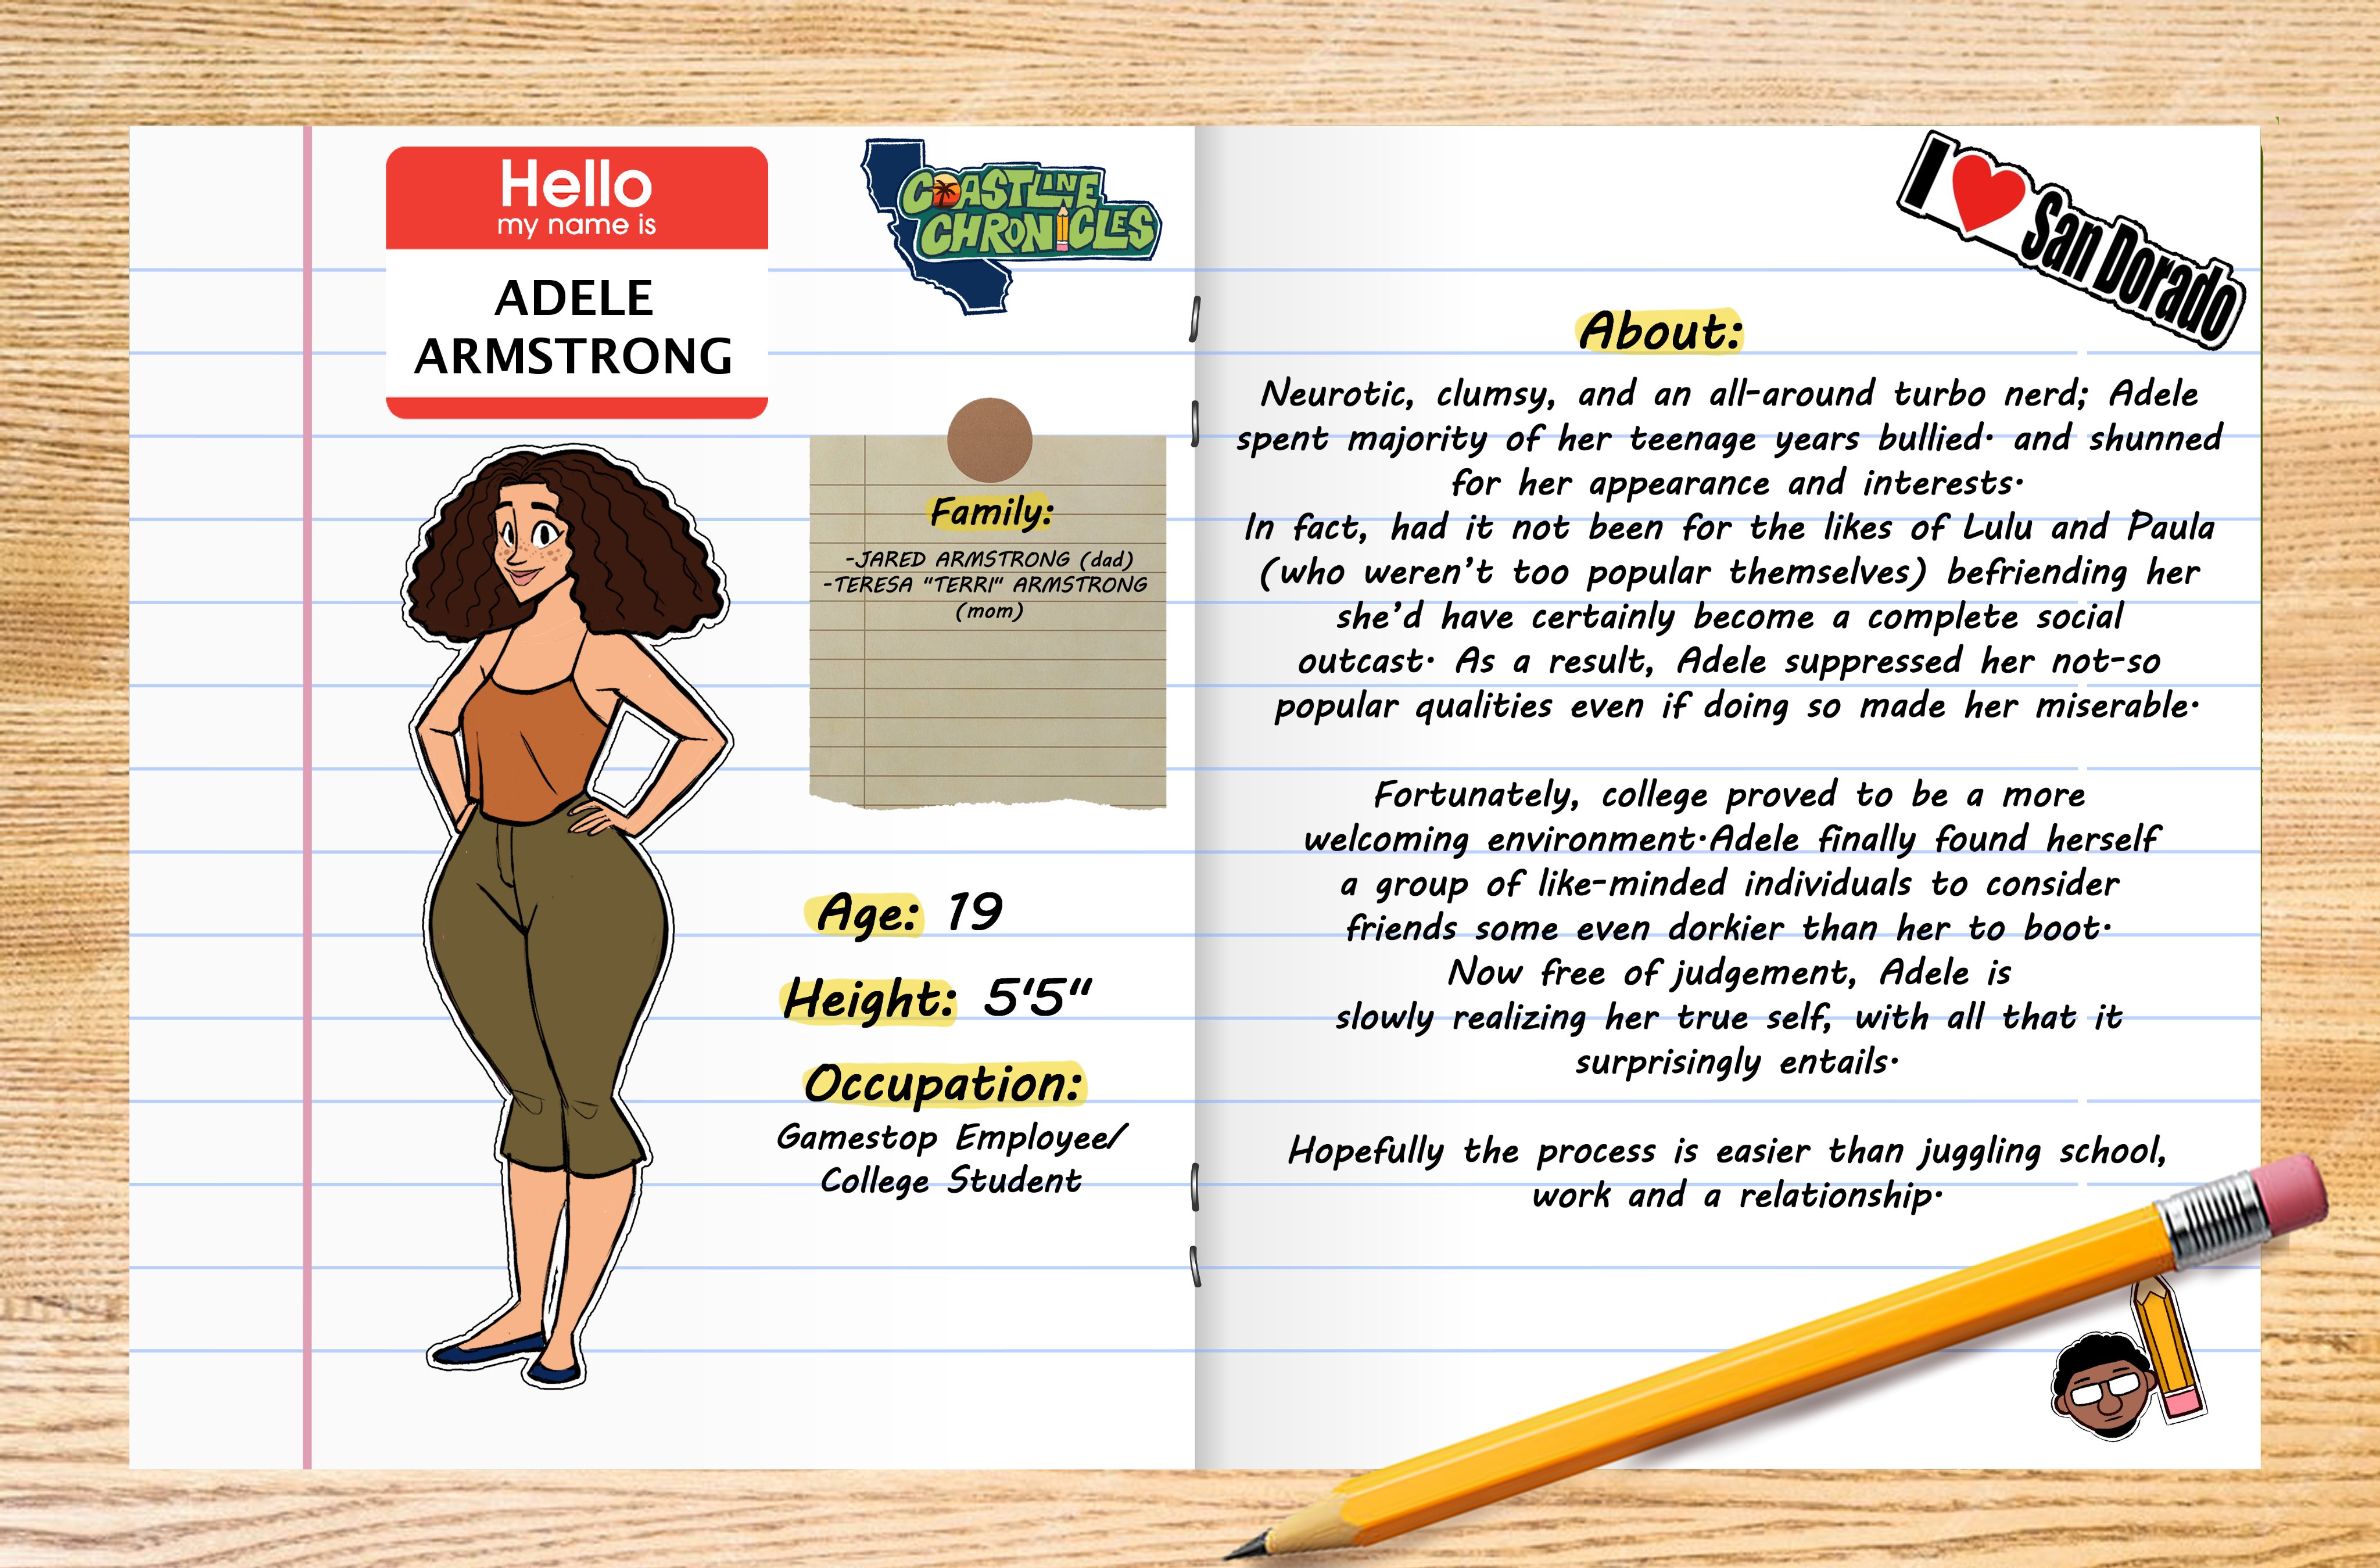 Hello
my name is
ADELE
ARMSTRONG
COASTLINE
CHRONICLES
Family:
-JARED ARMSTRONG (dad)
-TERESA "TERRI" ARMSTRONG
(mom)
Age: 19
Height: 5'5"
Occupation:
Gamestop Employee/
College Student
I ❤ San Dorado
About:
Neurotic, clumsy, and an all-around turbo nerd; Adele
spent majority of her teenage years bullied. and shunned
for her appearance and interests.
In fact, had it not been for the likes of Lulu and Paula
(who weren't too popular themselves) befriending her
she'd have certainly become a complete social
outcast. As a result, Adele suppressed her not-so
popular qualities even if doing so made her miserable.
Fortunately, college proved to be a more
welcoming environment.Adele finally found herself
a group of like-minded individuals to consider
friends some even dorkier than her to boot.
Now free of judgement, Adele is
slowly realizing her true self, with all that it
surprisingly entails.
Hopefully the process is easier than juggling school,
work and a relationship.